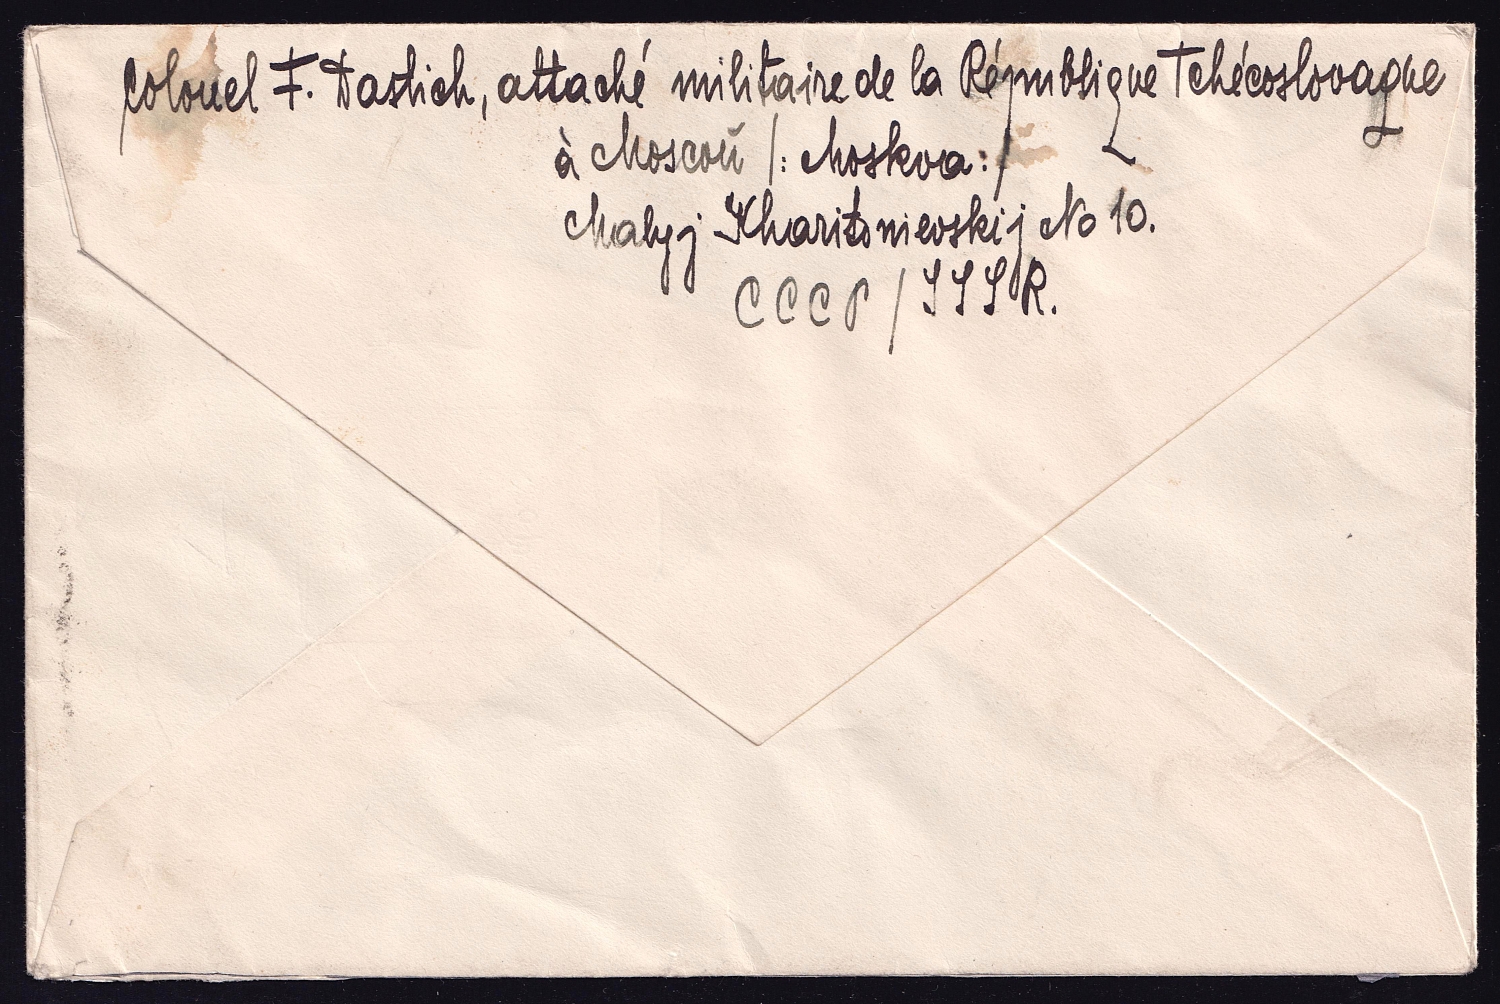 Colonel F. Dastich, attaché militaire de la République Tchécoslovaque
à Moscoŭ /: Moskva :/
Malyj Kharitonievskij No 10.
СССР / SSSR.